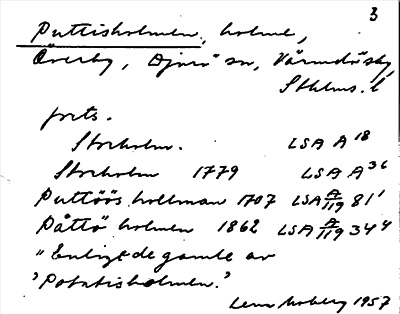 3
Puttisholmen, holme,
Överby, Djurö sn, Värmdö skg,
Sthlms. l
forts.
Storholm. LSA A 18
Storholm 1779 LSA A 36
Puttöös hollman 1707 LSA A/119 81¹
Påttö holmen 1862 LSA A/119 34⁴
"Enligt de gamle av
'Potatisholmen.'
1957